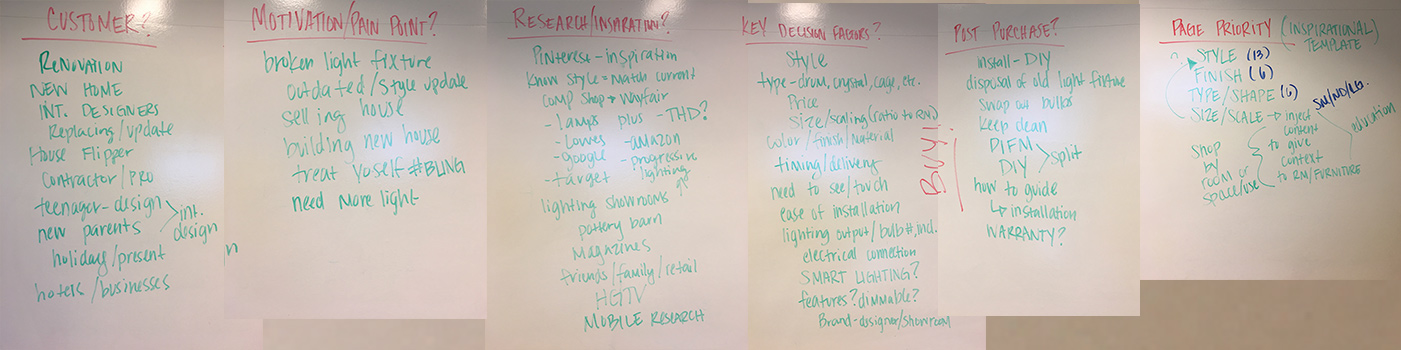 CUSTOMER?
RENOVATION
NEW HOME
INT. DESIGNERS
Replacing/update
House Flipper
Contractor/PRO
teenager-design
new parents
int.
design
holiday/present
hotels/businesses
n
MOTIVATION/PAIN POINT?
broken light fixture
outdated/style update
selling house
building new house
treat yoself #BLING
need more light
RESEARCH/INSPIRATION?
Pinterest-inspiration
Know style=Match current
Comp Shop → Wayfair
-Lamps plus -THD?
-Lowes -amazon
-google -progressive
-target lighting
lighting showrooms
pottery barn
Magazines
friends/family/retail
HGTV
MOBILE RESEARCH
KEY DECISION FACTORS?
Style
type-drum, crystal, cage, etc.
Price
Size/scaling (ratio to RM)
color/finish/material
timing/delivery
need to see/touch
ease of installation
lighting output/bulb#, incl.
electrical connection
SMART LIGHTING?
features? dimmable?
Brand-designer/showroom
BUY!
POST PURCHASE?
install-DIY
disposal of old light fixture
swap out bulbs
Keep clean
DIFM
DIY
split
how to guide
↳ installation
WARRANTY?
PAGE PRIORITY (INSPIRATIONAL
TEMPLATE)
STYLE (13)
FINISH (6)
TYPE/SHAPE (6)
SIZE/SCALE → inject
content
to give
context
to RM/FURNITURE
SM/MD/LG.
education
Shop
by
room or
space/use